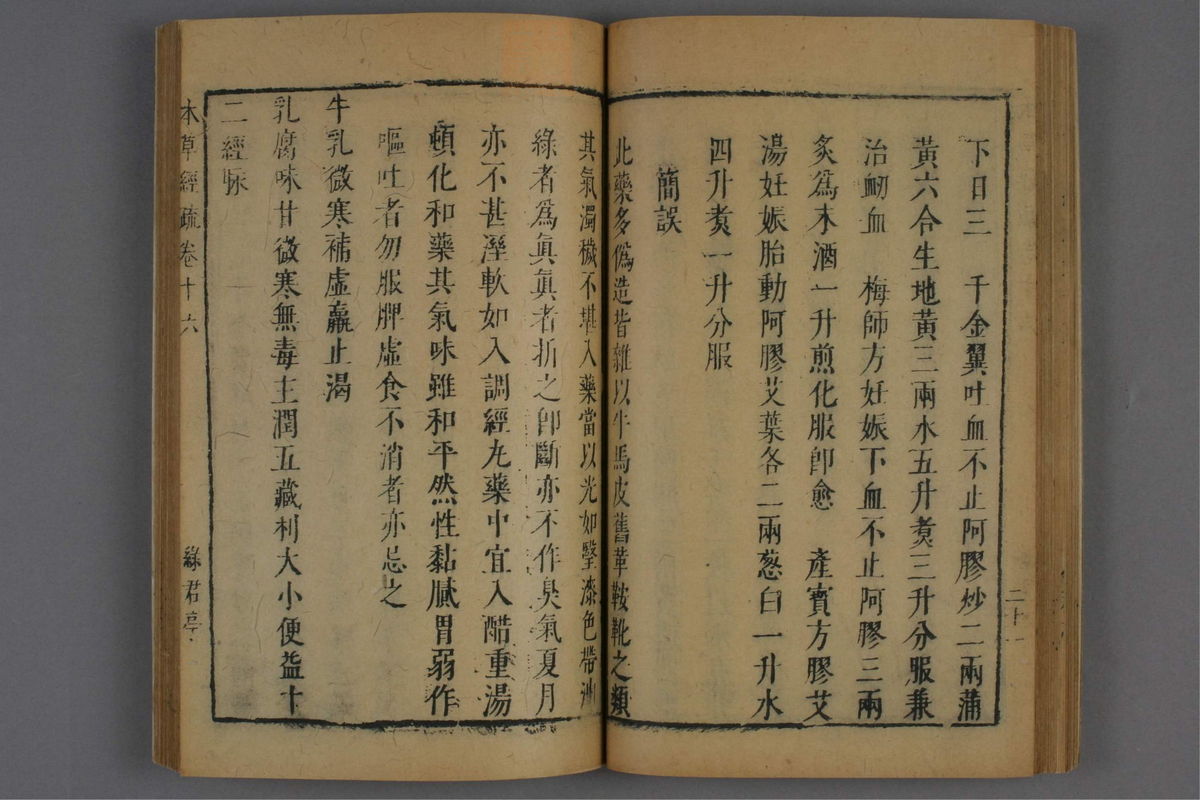 下日三　千金翼吐血不止阿膠炒二兩蒲
黃六合生地黃三兩水五升煑三升分服兼
治衂血　梅師方妊娠下血不止阿膠三兩
炙爲末酒一升煎化服卽愈　產寶方膠艾
湯妊娠胎動阿膠艾葉各二兩葱白一升水
四升煑一升分服
簡誤
此藥多僞造皆雜以牛馬皮舊革鞍靴之類
其氣濁穢不堪入藥當以光如瑿漆色帶油
綠者爲眞眞者折之卽斷亦不作臭氣夏月
亦不甚溼軟如入調經丸藥中宜入醋重湯
頓化和藥其氣味雖和平然性黏膩胃弱作
嘔吐者勿服脾虛食不消者亦忌之
牛乳微寒補虛羸止渴
乳腐味甘微寒無毒主潤五藏利大小便益十
二經脉
本草經疏卷十六
綠君亭
二十一